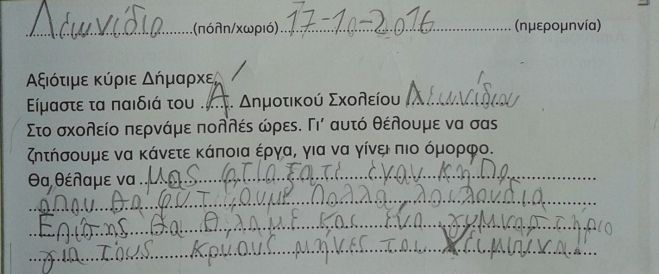 Λεωνίδιο (πόλη/χωριό) 17-10-2016 (ημερομηνία)
Αξιότιμε κύριε Δήμαρχε,
Είμαστε τα παιδιά του Α Δημοτικού Σχολείου Λεωνιδίου
Στο σχολείο περνάμε πολλές ώρες. Γι' αυτό θέλουμε να σας
ζητήσουμε να κάνετε κάποια έργα, για να γίνει πιο όμορφο.
Θα θέλαμε να μας φτιάξατε έναν κήπο
όπου θα φυτεύουμε πολλά λουλούδια
Επίσης θα θέλαμε και ένα γυμναστήριο
για τους κρυους μήνες του χειμώνα.